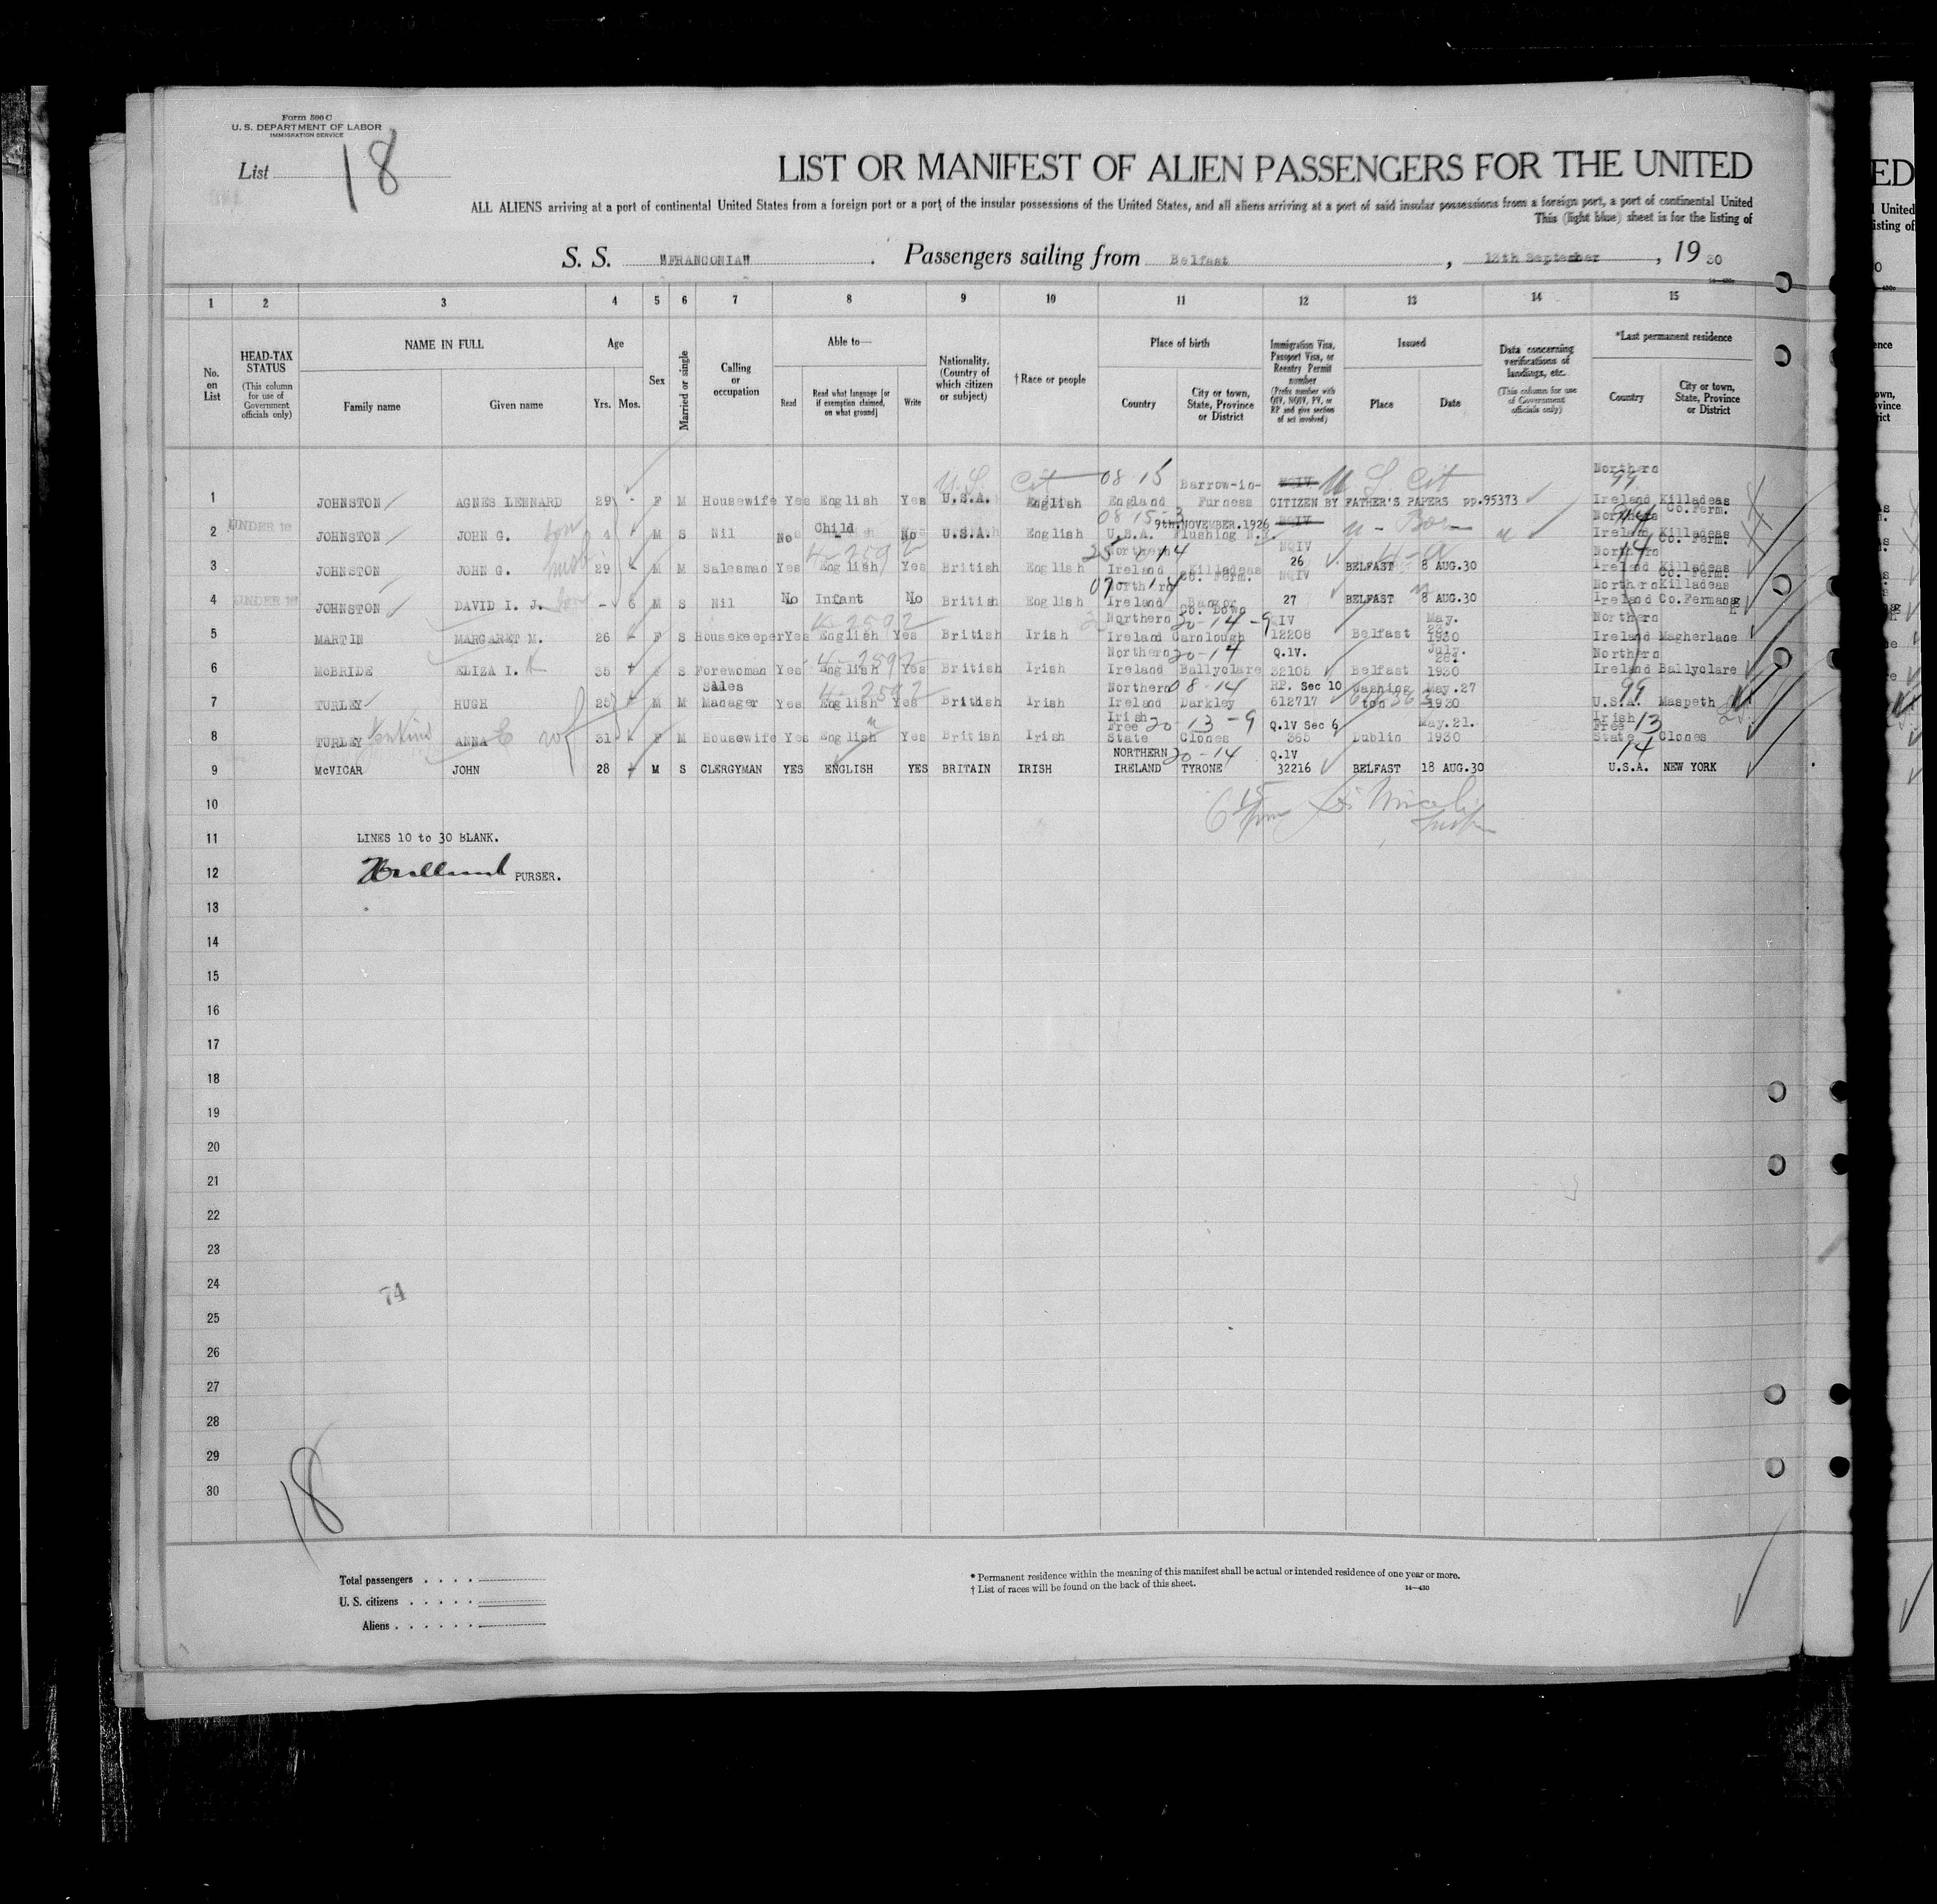 Form 500 C
U. S. DEPARTMENT OF LABOR
IMMIGRATION SERVICE
List 18
LIST OR MANIFEST OF ALIEN PASSENGERS FOR THE UNITED
ALL ALIENS arriving at a port of continental United States from a foreign port or a port of the insular possessions of the United States, and all aliens arriving at a port of said insular possessions from a foreign port, a port of continental United
This (light blue) sheet is for the listing of
S. S. "FRANCONIA". Passengers sailing from Belfast, 13th September, 19 30
1 2 3 4 5 6 7 8 9 10 11 12 13 14 15
No. on List
HEAD-TAX STATUS (This column for use of Government officials only)
NAME IN FULL Family name Given name
Age Yrs. Mos.
Sex
Married or single
Calling or occupation
Able to— Read Read what language [or if exemption claimed, on what ground] Write
Nationality. (Country of which citizen or subject)
† Race or people
Place of birth Country City or town, State, Province or District
Immigration Visa, Passport Visa, or Reentry Permit number (Prefix number with QIV, NQIV, PV, or RP and give section of act involved)
Issued Place Date
Data concerning verifications of landings, etc. (This column for use of Government officials only)
*Last permanent residence Country City or town, State, Province or District
1 JOHNSTON AGNES LENNARD 29 - F M Housewife Yes English Yes U.S.A. English England Barrow-in-Furness NQIV CITIZEN BY FATHER'S PAPERS pp.95373 Northern Ireland Killadeas Co.Ferm.
U.S. Cit 08 15 U S. Cit 99
2 UNDER 16 JOHNSTON JOHN G. son 4 M S Nil No Child No U.S.A. English U.S.A. 9th.NOVEMBER.1926 Flushing N.Y. NQIV Northern Ireland Killadeas Co. Ferm.
3 JOHNSTON JOHN G. husb 29 M M Salesman Yes English Yes British English Northern Ireland Killadeas Co. Ferm. NQIV 26 BELFAST 8 AUG.30 Northern Ireland Killadeas Co. Ferm.
4 UNDER 16 JOHNSTON DAVID I. J. son - 6 M S Nil No Infant No British English Northern Ireland Bangor Co. Down NQIV 27 BELFAST 8 AUG.30 Northern Ireland Killadeas Co.Fermanagh
5 MARTIN MARGARET M. 26 - F S Housekeeper Yes English Yes British Irish Northern Ireland Carnlough QIV 12208 Belfast May. 1930 Northern Ireland Magherlane
6 McBRIDE ELIZA I. 35 F S Forewoman Yes English Yes British Irish Northern Ireland Ballyclare Q.1V. 32105 Belfast July. 1930 Northern Ireland Ballyclare
7 TURLEY HUGH 25 M M Sales Manager Yes English Yes British Irish Northern Ireland Darkley RP. Sec 10 612717 Washington May.27 1930 U.S.A. Maspeth
8 TURLEY ANNA E 31 F M Housewife Yes English Yes British Irish Irish Free State Clones Q.1V Sec 6 365 Dublin May.21. 1930 Irish Free State Clones
9 McVICAR JOHN 28 M S CLERGYMAN YES ENGLISH YES BRITAIN IRISH NORTHERN IRELAND TYRONE Q.1V 32216 BELFAST 18 AUG.30 U.S.A. NEW YORK
10
11 LINES 10 to 30 BLANK.
12 PURSER.
13
14
15
16
17
18
19
20
21
22
23
24
74
25
26
27
28
29
30
18
Total passengers
U. S. citizens
Aliens
* Permanent residence within the meaning of this manifest shall be actual or intended residence of one year or more.
† List of races will be found on the back of this sheet.
14—430